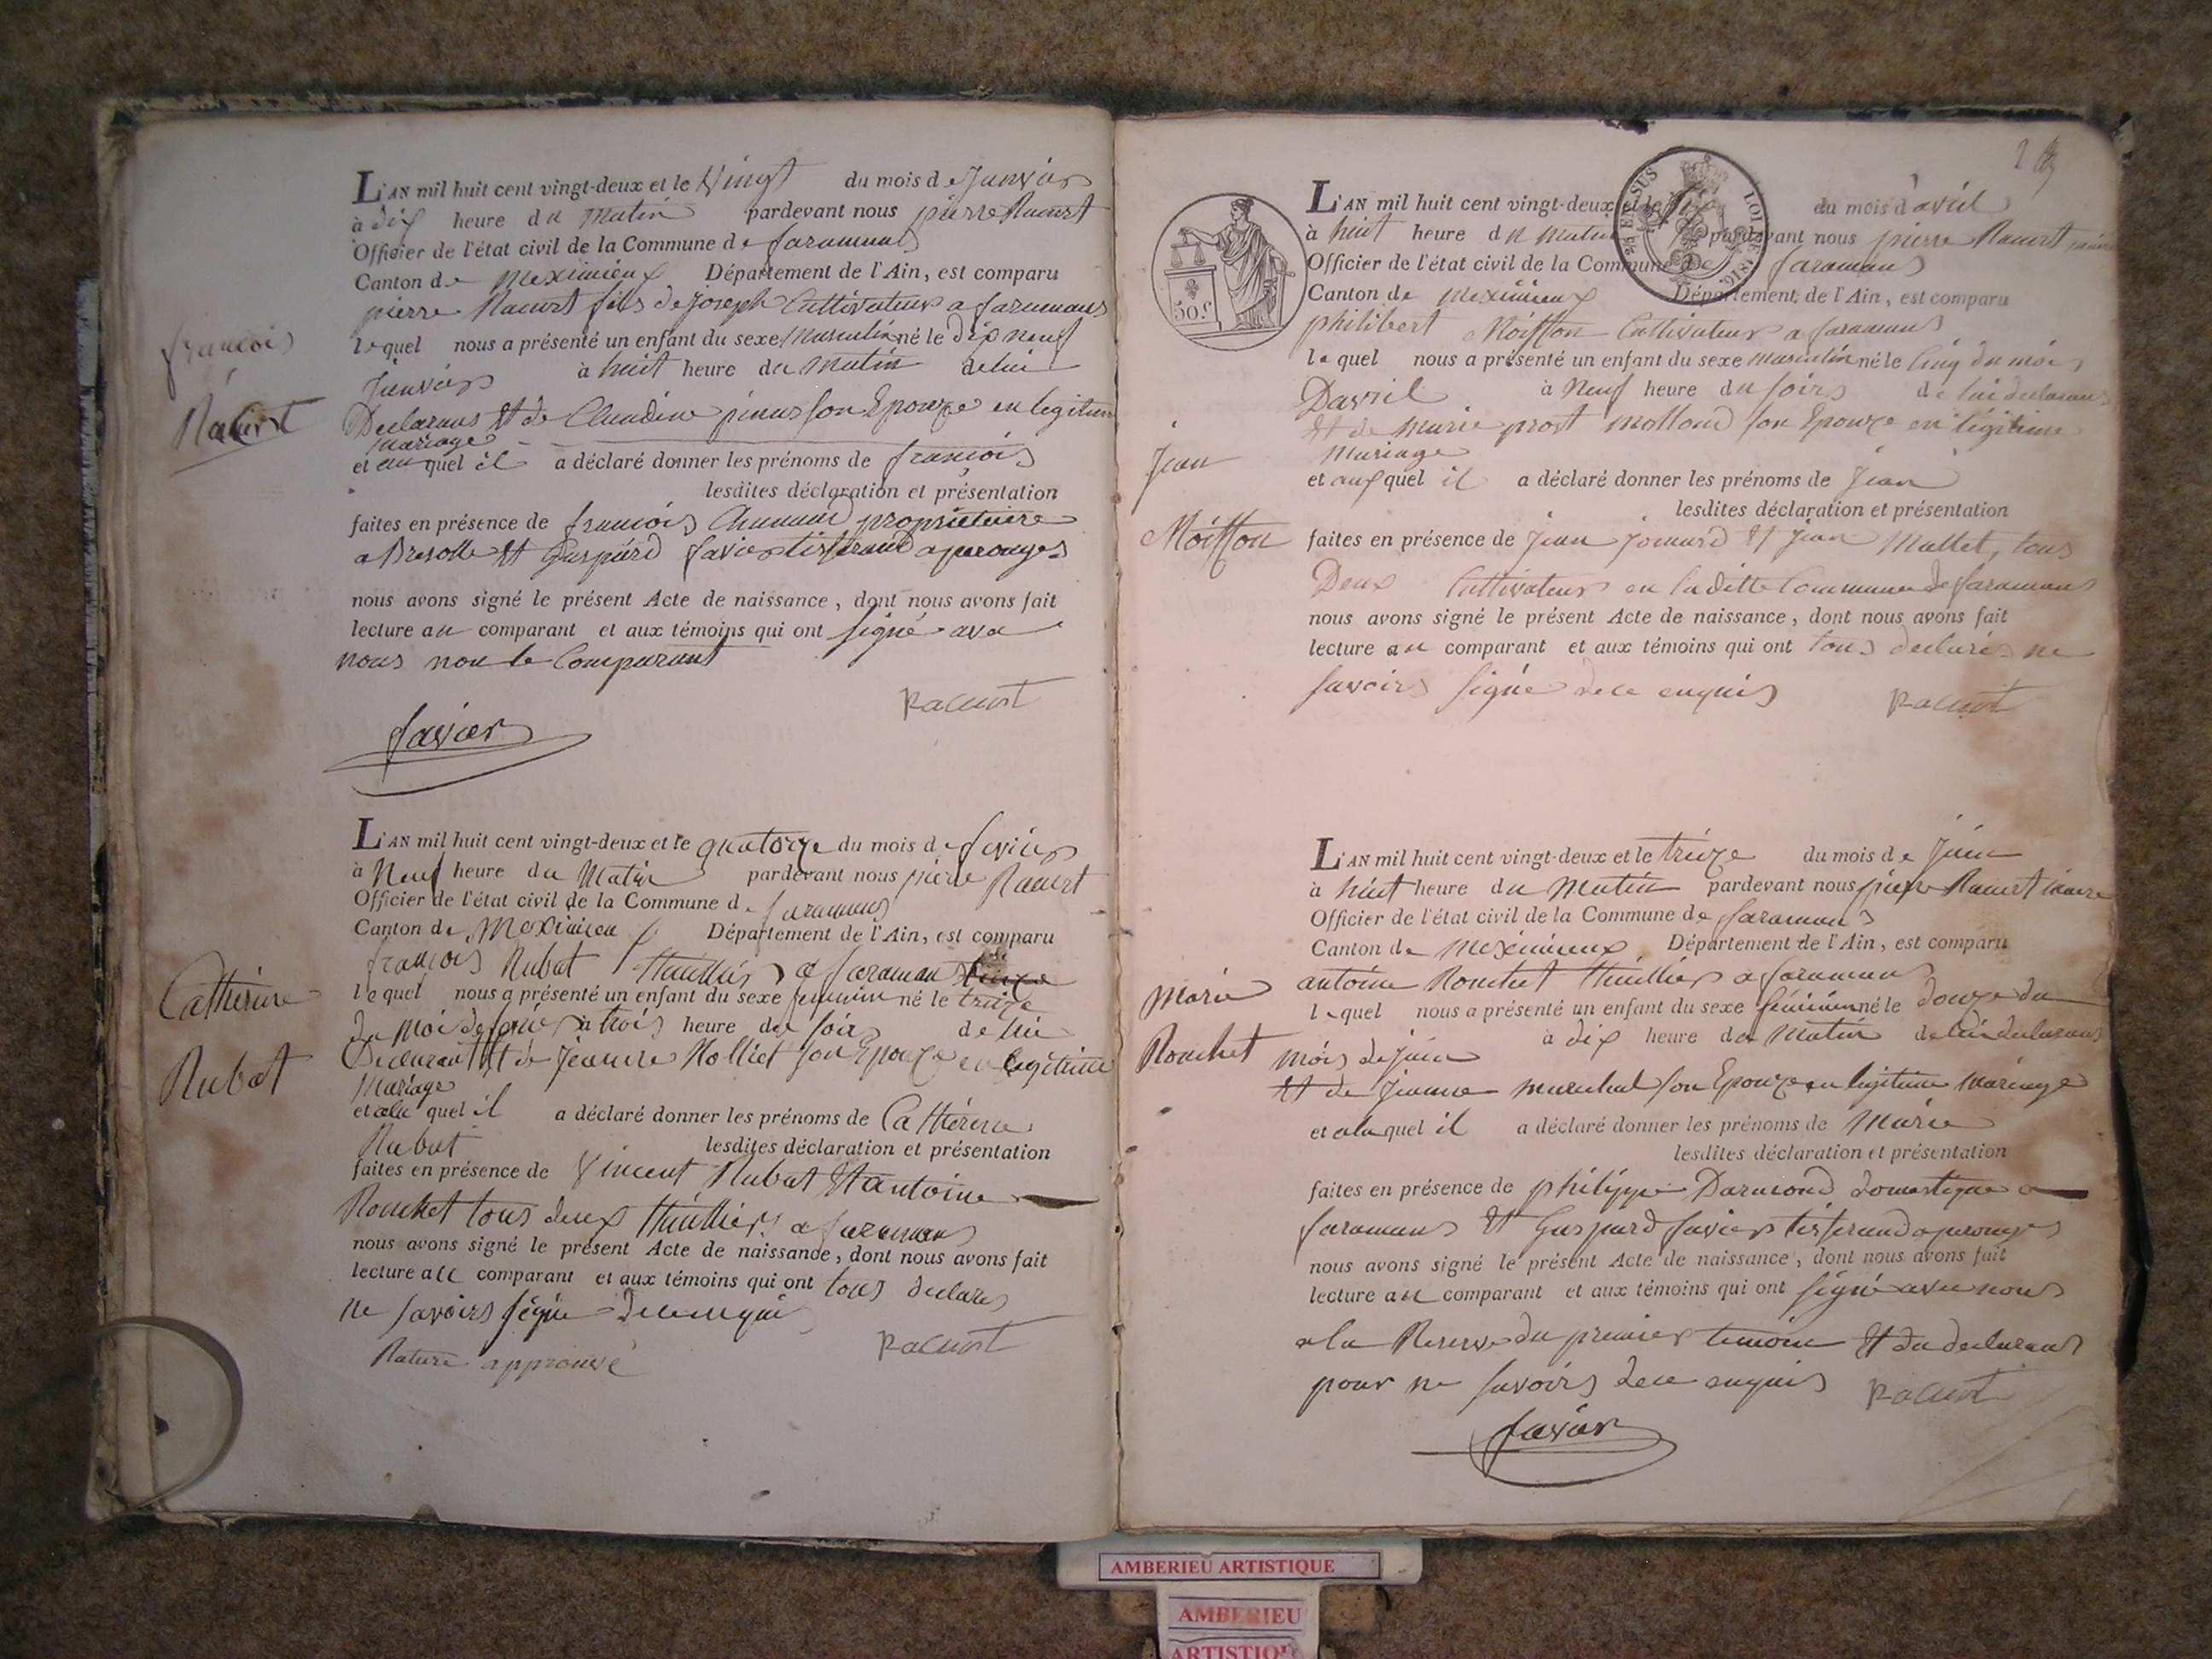 L'AN mil huit cent vingt-deux et le Vingt du mois de Janvier
à dix heure du Matin pardevant nous pierre Racurt
Officier de l'état civil de la Commune de faramans
Canton de Meximieux Département de l'Ain, est comparu
pierre Racurt fils de joseph Cultivateur a faramans
lequel nous a présenté un enfant du sexe Masculin né le dix neuf
Janvier à huit heure du Matin de lui
Declarans Et de Claudine son Epouze en legitime
Mariage
et au quel il a déclaré donner les prénoms de françois
lesdites déclaration et présentation
faites en présence de françois proprietaire
a Et Gaspard favier tisserand a perouges
nous avons signé le présent Acte de naissance, dont nous avons fait
lecture au comparant et aux témoins qui ont signé avec
nous non le Comparant
Racurt
favier
françois
Racurt
L'AN mil huit cent vingt-deux et le quatorze du mois de fevrier
à Neuf heure du Matin pardevant nous pierre Racurt
Officier de l'état civil de la Commune de faramans
Canton de Meximieux Département de l'Ain, est comparu
françois Rubat thuillier a faramans
lequel nous a présenté un enfant du sexe feminin né le treize
du Moi de fevrier à trois heure du soir de lui
Declarant Et de Jeanne Holliet son Epouze en legitime
Mariage
et a la quel il a déclaré donner les prénoms de Catherine
Rubat lesdites déclaration et présentation
faites en présence de Vincent Rubat Et antoine
Rouchet tous deux thuillier a faramans
nous avons signé le présent Acte de naissance, dont nous avons fait
lecture au comparant et aux témoins qui ont tous declares
ne savoirs signe de ce enquis
Rature approuvé
Racurt
Catherine
Rubat
L'AN mil huit cent vingt-deux et le six du mois d'avril
à huit heure du Matin pardevant nous pierre Racurt maire
Officier de l'état civil de la Commune de faramans
Canton de Meximieux Département de l'Ain, est comparu
philibert Moiffon Cultivateur a faramans
lequel nous a présenté un enfant du sexe masculin né le Cinq du moi
Davril à Neuf heure du soirs de lui declarans
Et de Marie prost Molland son Epouze en légitime
Mariage
et auquel il a déclaré donner les prénoms de Jean
lesdites déclaration et présentation
faites en présence de Jean jomard Et Jean Mallet, tous
Deux Cultivateur en laditte Commune de faramans
nous avons signé le présent Acte de naissance, dont nous avons fait
lecture au comparant et aux témoins qui ont tous declarés ne
savoirs signé de ce enquis
Racurt
Jean
Moiffon
50.c
LOI DE 1816
L'AN mil huit cent vingt-deux et le treize du mois de Juin
à huit heure du Matin pardevant nous pierre Racurt maire
Officier de l'état civil de la Commune de faramans
Canton de Meximieux Département de l'Ain, est comparu
antoine Rouchet thuillier a faramans
lequel nous a présenté un enfant du sexe féminin né le douze du
mois de juin à dix heure du Matin de lui declarans
Et de Jeanne marechal son Epouze en legitime Mariage
et a la quel il a déclaré donner les prénoms de Marie
lesdites déclaration et présentation
faites en présence de philippe Darmond domestique a
faramans Et Gaspard favier tisserand a perouges
nous avons signé le présent Acte de naissance, dont nous avons fait
lecture au comparant et aux témoins qui ont signé avec nous
a la Reserve du premier temoin Et du declarans
pour ne savoirs de ce enquis
Racurt
favier
Marie
Rouchet
AMBERIEU ARTISTIQUE
AMBERIEU